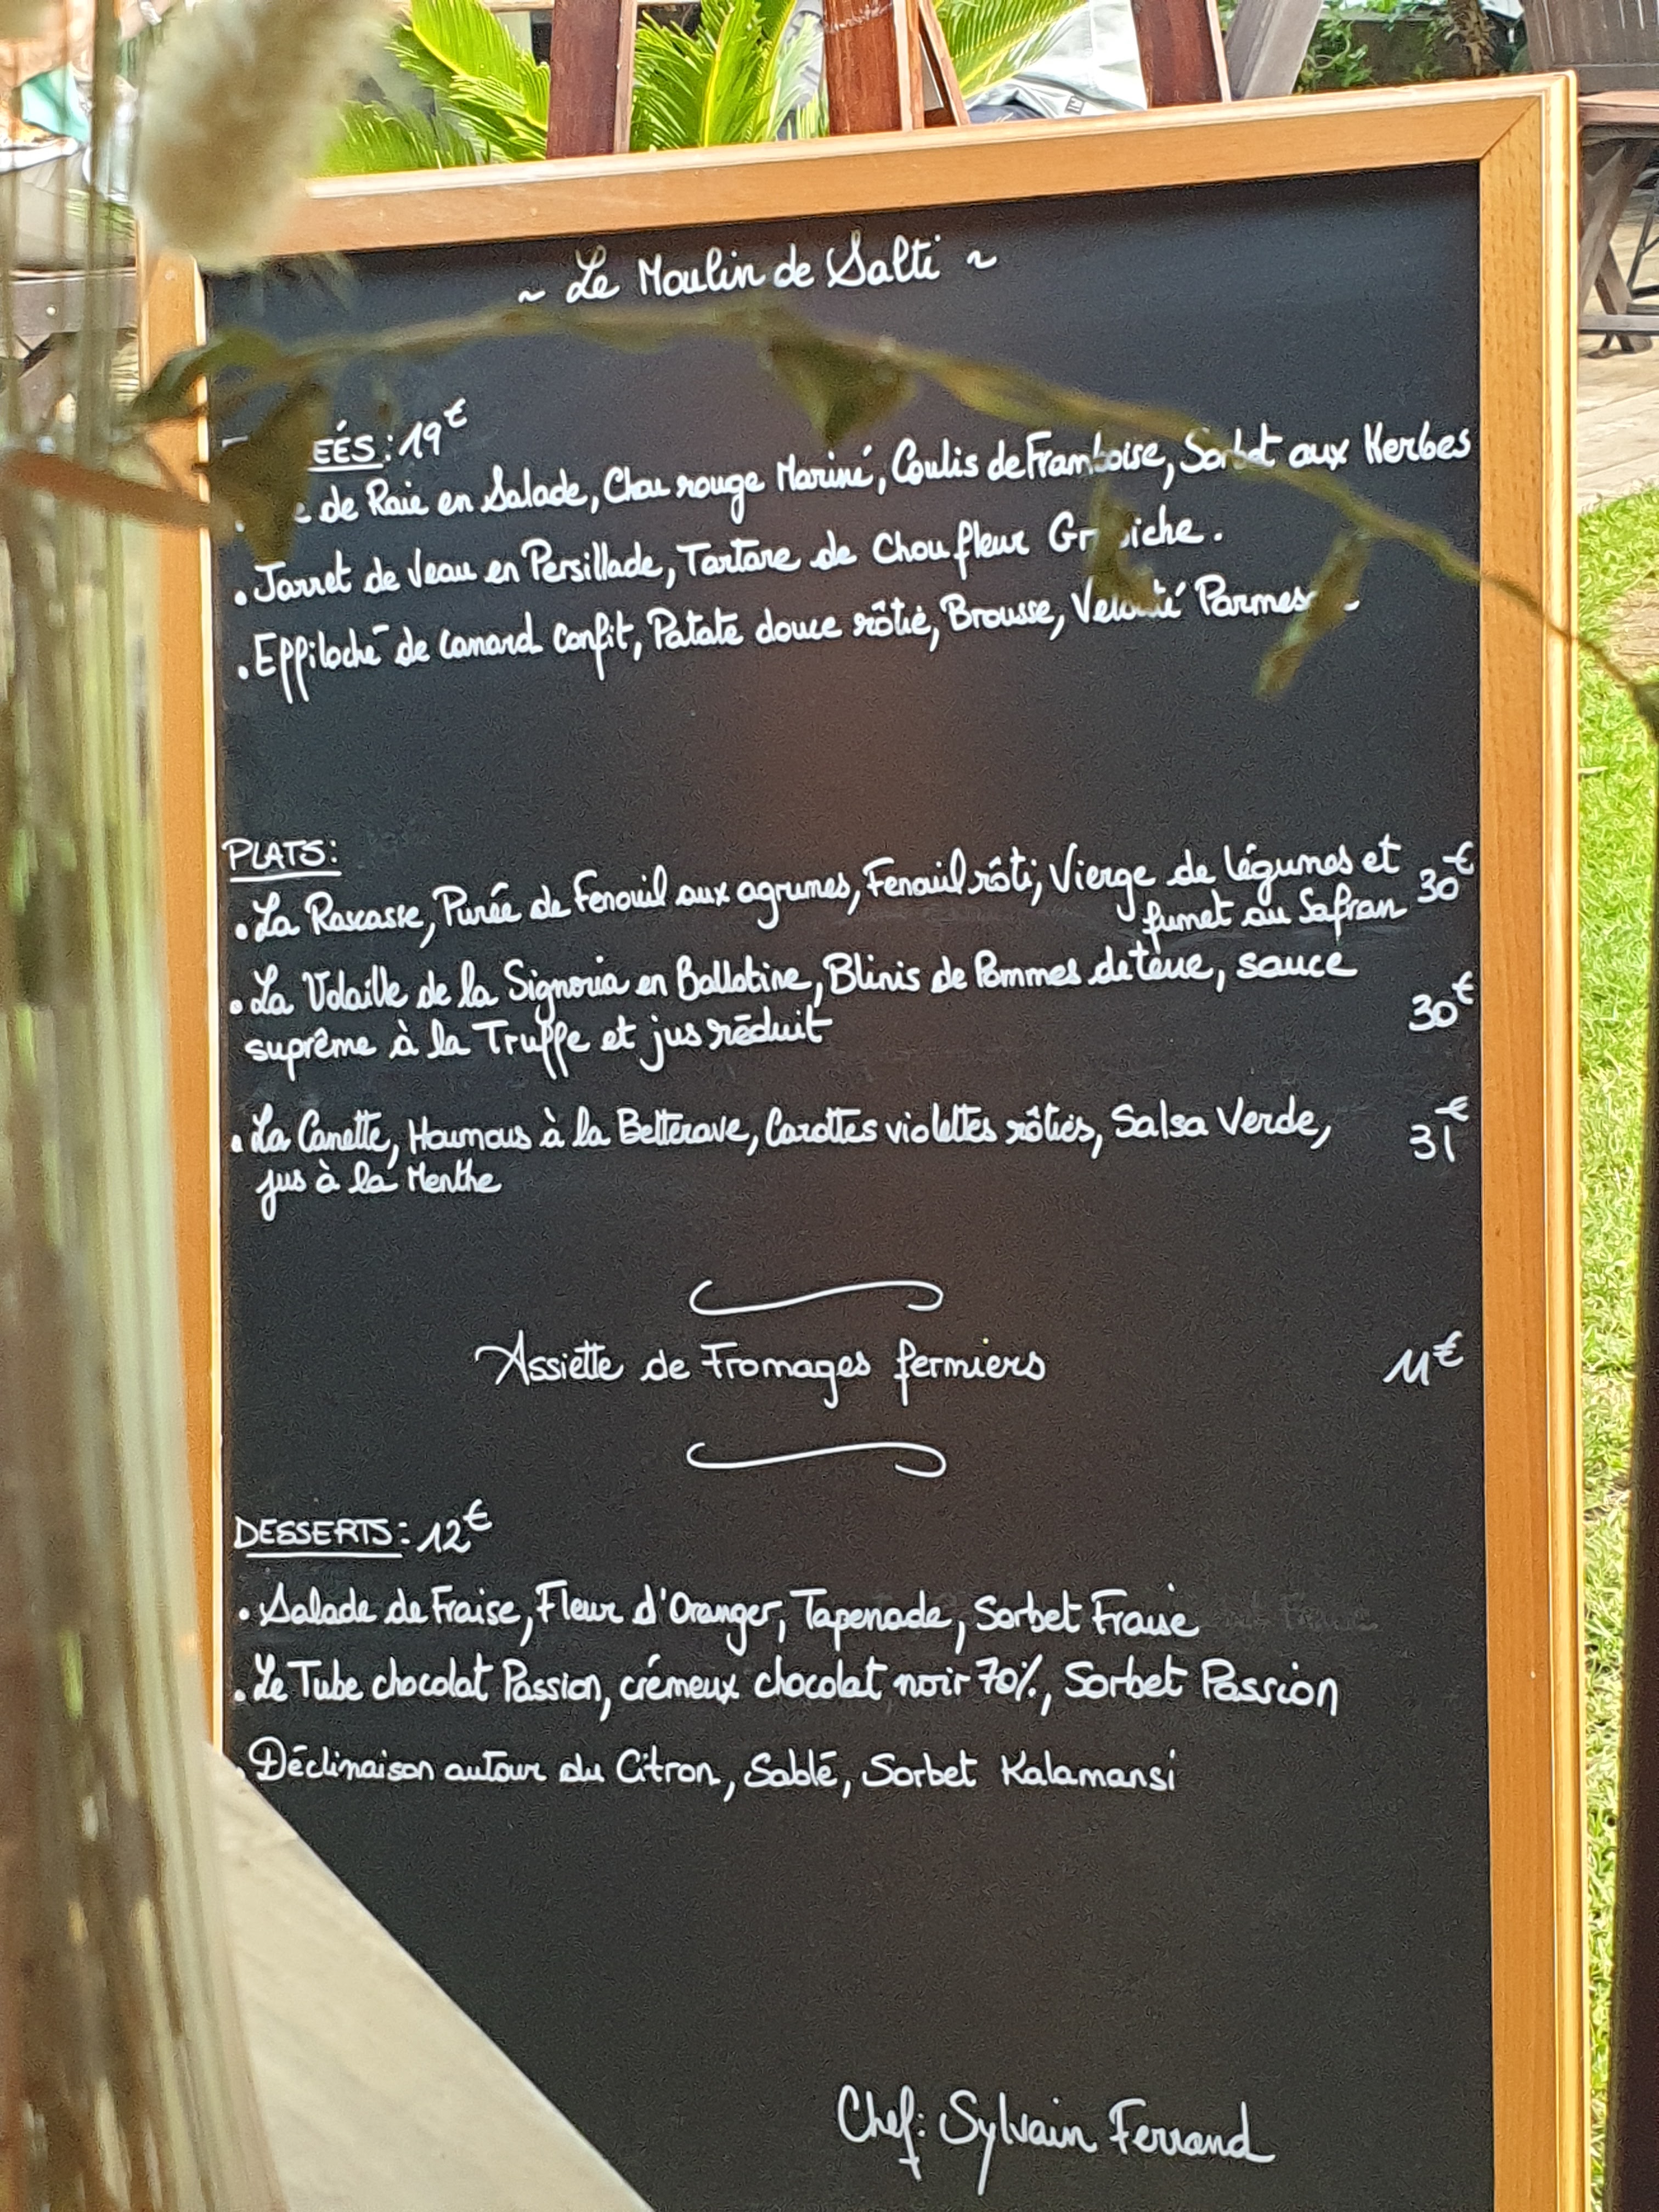 ~ Le Moulin de Salti ~
EÉS : 19€
de Raie en Salade, Chou rouge Mariné, Coulis de Framboise, Sorbet aux Herbes
• Jarret de Veau en Persillade, Tartare de Chou fleur
• Effiloché de Canard Confit, Patate douce rôtie, Brousse, Velouté
PLATS :
• La Rascasse, Purée de Fenouil aux agrumes, Fenouil rôti, Vierge de légumes et 30€
fumet au Safran
• La Volaille de la Signoria en Ballotine, Blinis de Pommes de terre, sauce
suprême à la Truffe et jus réduit 30€
• La Canette, Houmous à la Betterave, Carottes violettes rôties, Salsa Verde, 31€
jus à la Menthe
Assiette de Fromages fermiers 11€
DESSERTS : 12€
• Salade de Fraise, Fleur d'Oranger, Tapenade, Sorbet Fraise
• Le Tube chocolat Passion, crémeux chocolat noir 70%, Sorbet Passion
• Déclinaison autour du Citron, Sablé, Sorbet Kalamansi
Chef : Sylvain Ferrand